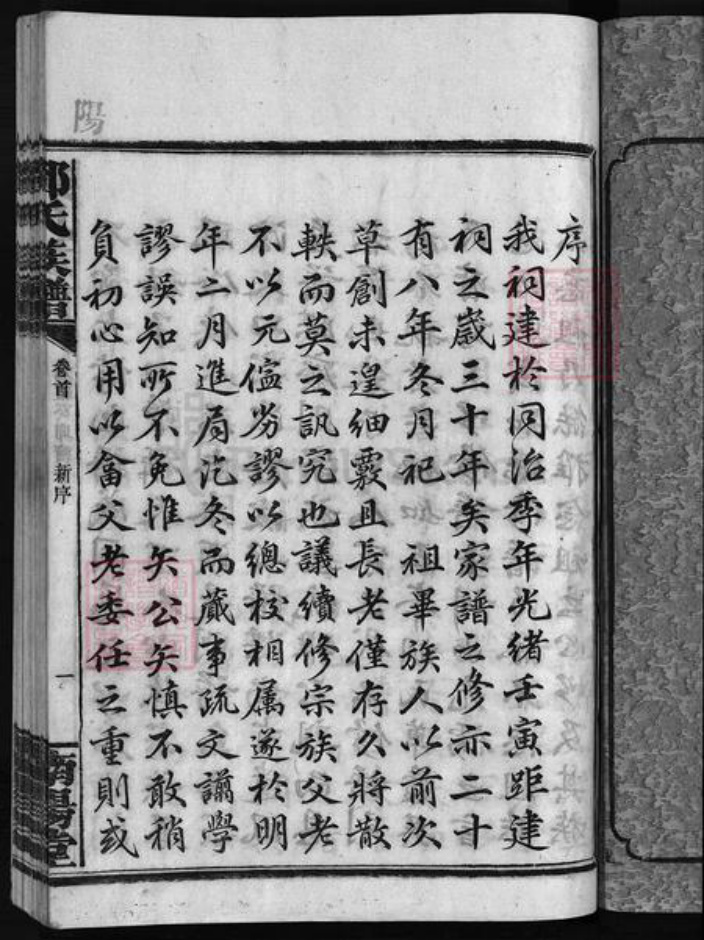 序
我祠建於同治季年光緒壬寅距建
祠之歲三十年矣家譜之修亦二十
有八年冬月祀 祖畢族人以前次
草創未遑細覈且長老僅存久將散
軼而莫之訊究也議續修宗族父老
不以元儘劣謬以總校相属遂於明
年二月進局迄冬而蕆事疏文譾學
謬誤知所不免惟矢公矢慎不敢稍
負初心用以畣父老委任之重則或
氏族譜
卷首
新序
一
南陽堂
陽